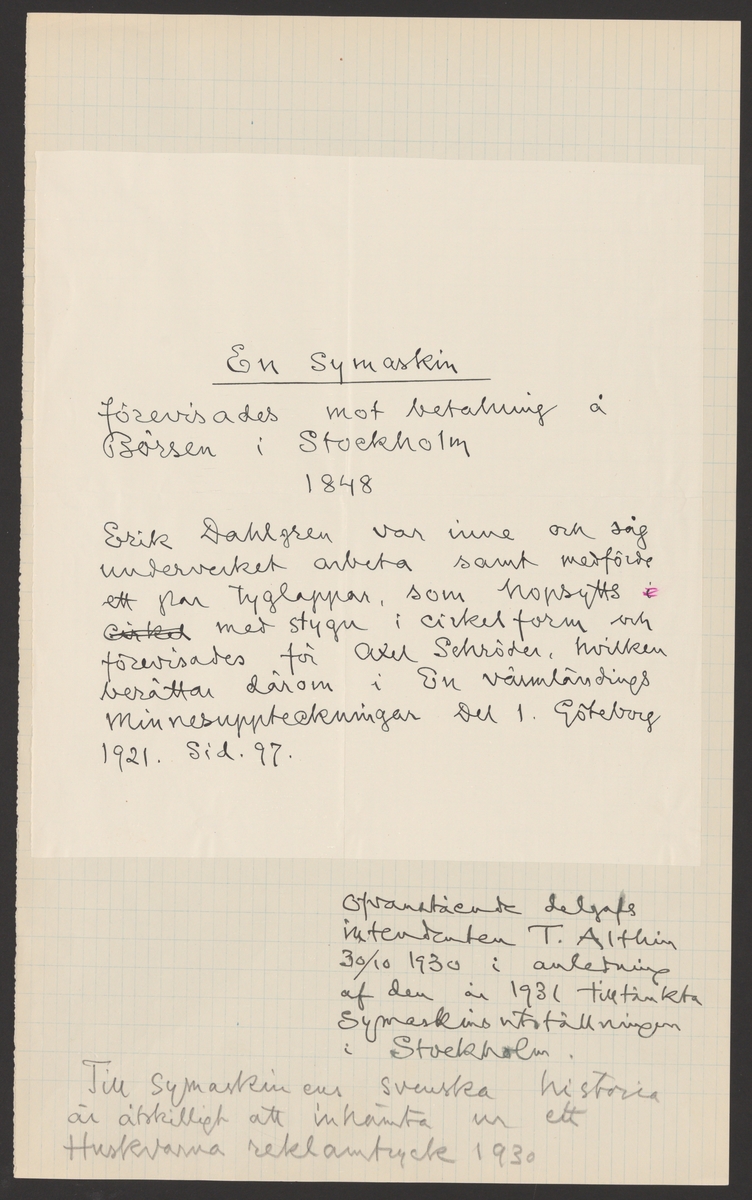 En symaskin
förevisades mot betalning å
Börsen i Stockholm
1848
Erik Dahlgren var inne och såg
underverket arbeta samt medförde
ett par tyglappar, som hopsytts i
cirkel med stygn i cirkelform och
förevisades för Axel Schröder, hvilken
berättar därom i En värmländings
Minnesuppteckningar Del 1. Göteborg
1921. Sid. 97.
Ofvanstående delgafs
intendenten T. Althin
30/10 1930 i anledning
af den år 1931 tilltänkta
Symaskinsutställningen
i Stockholm.
Till symaskinens svenska historia
är åtskilligt att inhämta ur ett
Huskvarna reklamtryck 1930